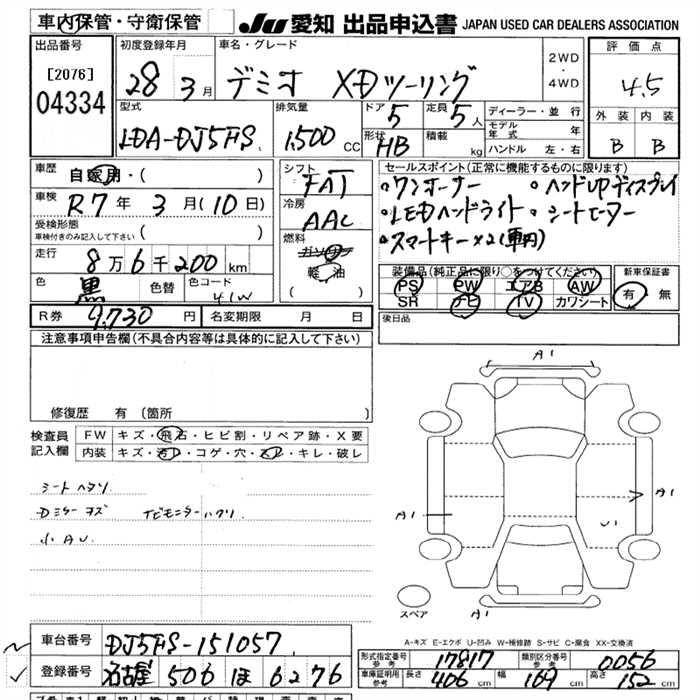 車内保管・守衛保管
JU 愛知 出品申込書 JAPAN USED CAR DEALERS ASSOCIATION
出品番号
[2076]
04334
初度登録年月
28 3月
車名・グレード
デミオ XDツーリング
2WD
・
4WD
評価点
4.5
外装 内装
B B
型式
LDA-DJ5FS
排気量
1,500 CC
ドア 5
形状 HB
定員 5人
積載 kg
ディーラー・並行
モデル年式 年
ハンドル 左・右
車歴 自家用・( )
車検 R7年 3月(10日)
受検形態
車検付きのみ記入して下さい ( )
走行 8万6千200km
色 黒 色替 色コード 41W
R券 9,730円 名変期限 月 日
シフト FAT
冷房 AAC
燃料
ガソリン
軽油
( )
セールスポイント(正常に機能するものに限ります)
・ワンオーナー ・ヘッドUPディスプレイ
・LEDヘッドライト ・シートヒーター
・スマートキー×2(車内)
装備品(純正品に限り○をつけてください)
PS PW エアB AW
SR ナビ TV カワシート
新車保証書
有・無
後日品
注意事項申告欄(不具合内容等は具体的に記入して下さい)
修復歴 有(箇所 )
検査員記入欄
FW キズ・飛石・ヒビ割・リペア跡・X要
内装 キズ・汚レ・コゲ・穴・スレ・キレ・破レ
シートヘタリ
Dミラーキズ ナビモニターハクリ
小AU
A1
A1
A1
U1
A1
スペア
A-キズ E-エクボ U-凹み W-補修跡 S-サビ C-腐食 XX-交換済
車台番号 DJ5FS-151057
登録番号 名古屋 506 ほ 6276
形式指定番号 17817 類別区分番号 0056
車庫証明用記入 長さ 406cm 幅 169cm 高さ 152cm